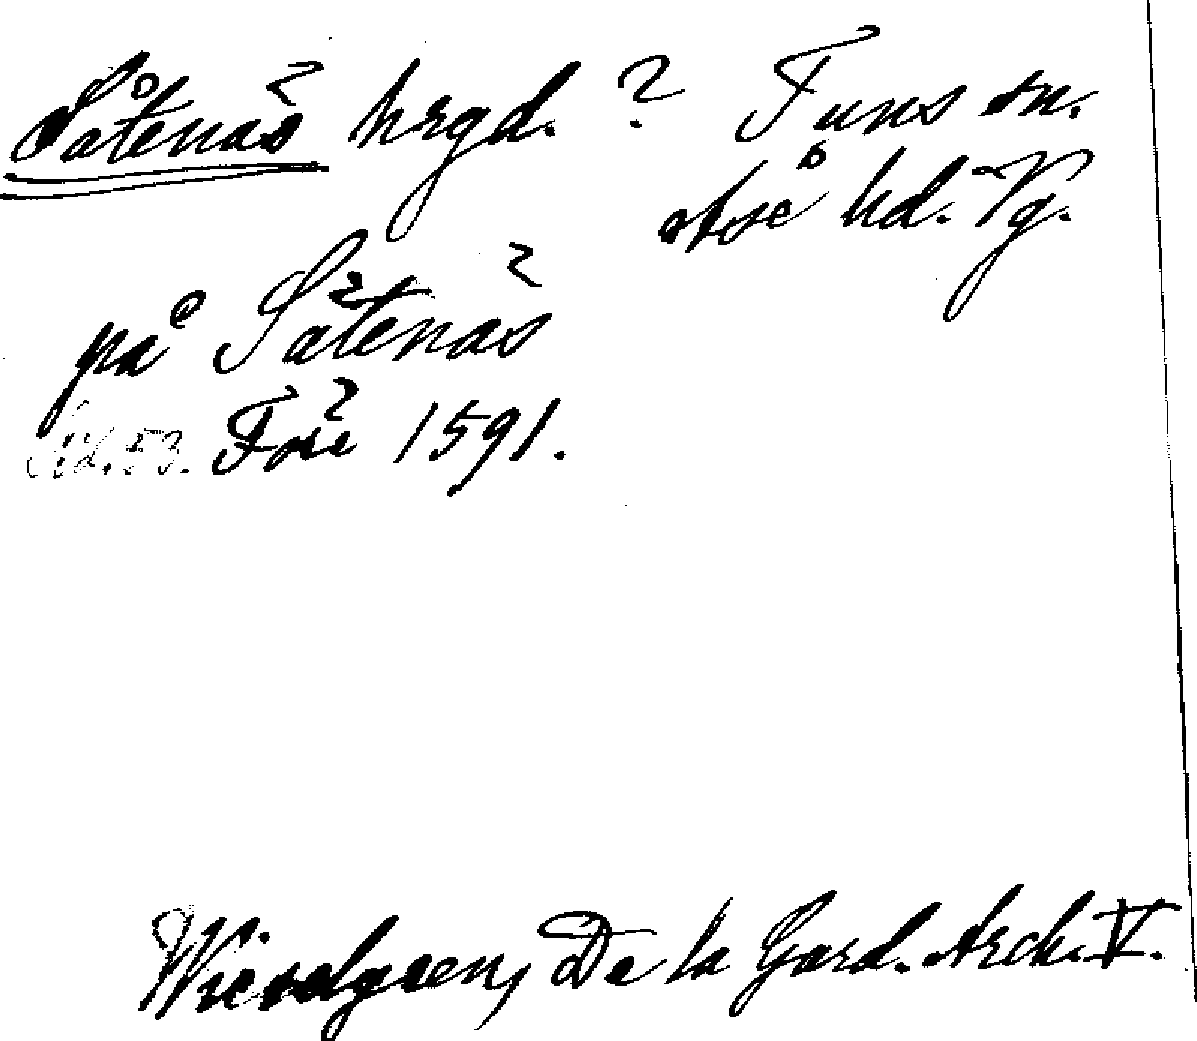 Såtenäs hrgd. ? Tuns sn.
Åse hd. Vg.
på Sätenäs
Sid. 53. Före 1591.
Wieselgren, De la Gard. Arch. V.